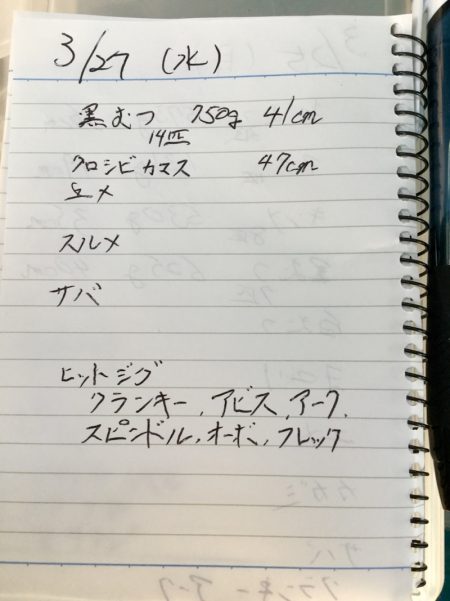 3/27 (水)
黒むつ 750g 41cm
14匹
クロシビカマス 47cm
ユメ
スルメ
サバ
ヒットジグ
クランキー、アビス、アーク、
スピンドル、オーボ、フレック